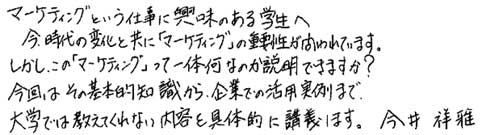 マーケティングという仕事に興味のある学生へ
今、時代の変化と共に「マーケティング」の重要性が問われています。
しかし、この「マーケティング」って一体何なのか説明できますか?
今回はその基本的知識から、企業での活用実例まで、
大学では教えてくれない内容を具体的に講義します。 今井祥雅